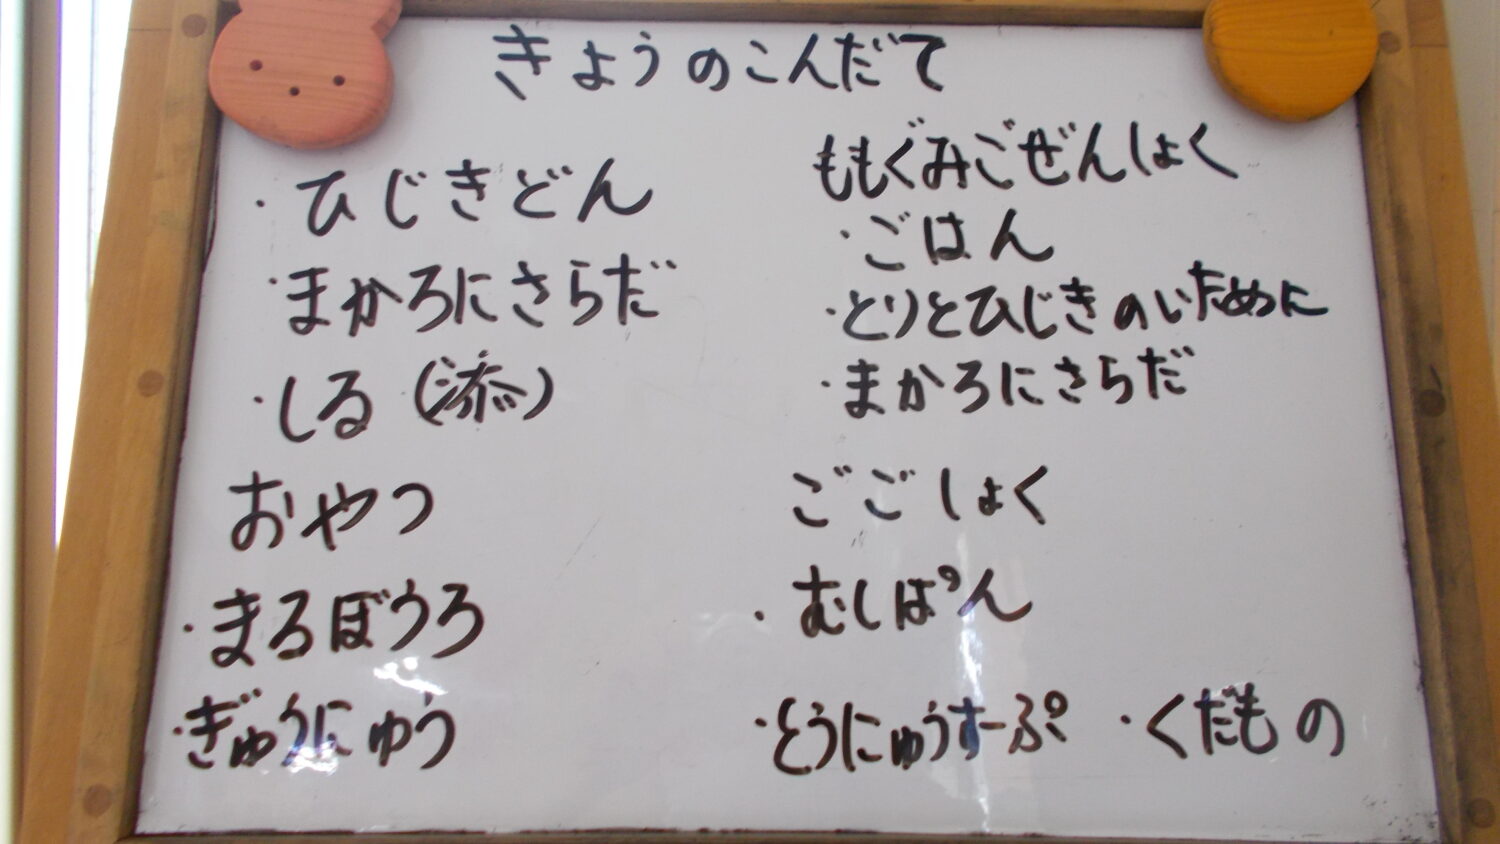 きょうのこんだて
・ひじきどん
・まかろにさらだ
・しる(添)
おやつ
・まるぼうろ
・ぎゅうにゅう
ももぐみごぜんしょく
・ごはん
・とりとひじきのいために
・まかろにさらだ
ごごしょく
・むしぱん
・とうにゅうすーぷ ・くだもの